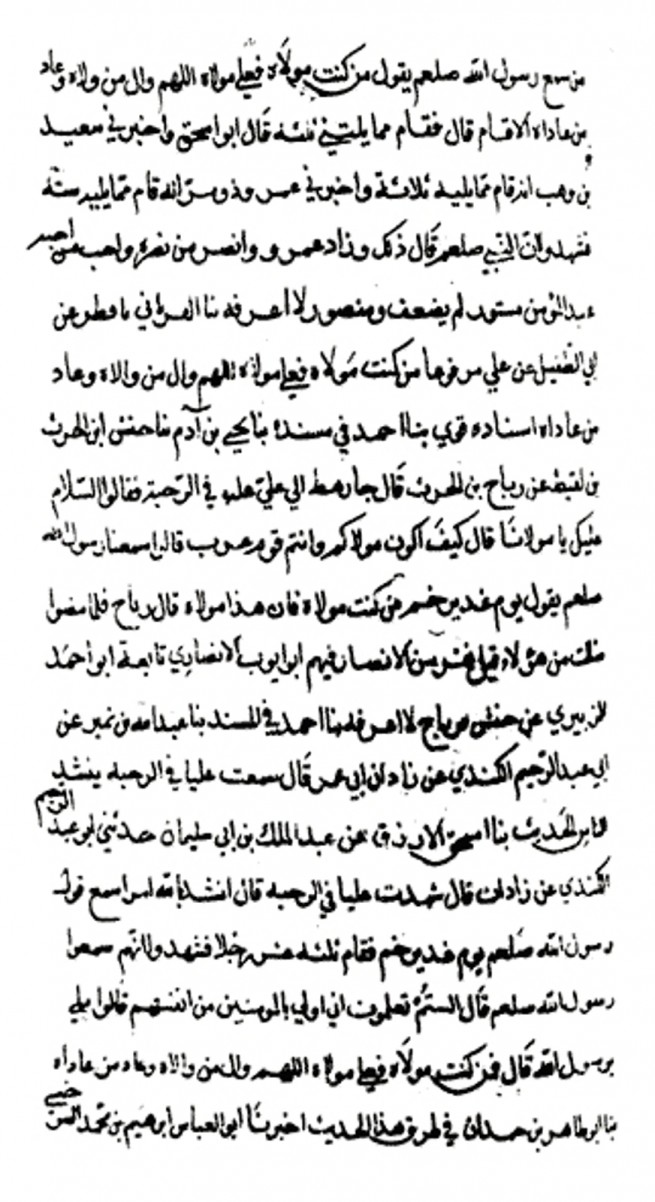 من سمع رسول الله صلعم يقول من كنت مولاه فعلي مولاه اللهم وال من والاه وعاد
من عاداه الا قام قال فقام مما يليني ثلثه قال ابو اسحق واخبرني سعيد
بن وهب انه قام مما يليه ثلاثة واخبرني عمرو ذو مر انه قام مما يليه ستة
فشهدوا ان النبي صلعم قال ذلك وزاد عمرو وانصر من نصره واحب من احبه
لم يضعف ومنصور لا اعرفه نا الفريابي نا فطر عن
ابي الطفيل عن علي مرفوعا من كنت مولاه فعلي مولاه اللهم وال من والاه وعاد
من عاداه اسناده قوي بنا احمد في مسنده بنا يحيى بن آدم نا حنش ابن الحرث
بن لقيط عن رياح بن الحرث قال جا رهط الى علي في الرحبة فقالوا السلام
عليك يا مولانا قال كيف اكون مولاكم وانتم قوم عرب قالوا سمعنا رسول الله
صلعم يقول يوم غدير خم من كنت مولاه فان هذا مولاه قال رياح فلما مضوا
قلت من هؤلاء قيل نفر من الانصار فيهم ابو ايوب الانصاري تابعه ابو احمد
الزبيري عن حنش ورياح لا اعرفه بنا احمد في المسند بنا عبد الله بن نمير عن
ابي عبد الرحيم الكندي عن زاذان ابي عمر قال سمعت عليا في الرحبه ينشد
الناس الحديث بنا اسحق الازرق عن عبد الملك بن ابي سليمان حدثني ابو عبد الرحيم
الكندي عن زاذان قال شهدت عليا في الرحبه قال انشد بالله امرا سمع قول
رسول الله صلعم يوم غدير خم فقام ثلثه عشر رجلا فشهدوا انهم سمعوا
رسول الله صلعم قال الستم تعلمون اني اولى بالمومنين من انفسهم قالوا بلى
يرسول الله قال فمن كنت مولاه فعلي مولاه اللهم وال من والاه وعاد من عاداه
بنا ابو طاهر بن حمدان في طرق هذا الحديث اخبرنا ابو العباس ابرهيم بن محمد